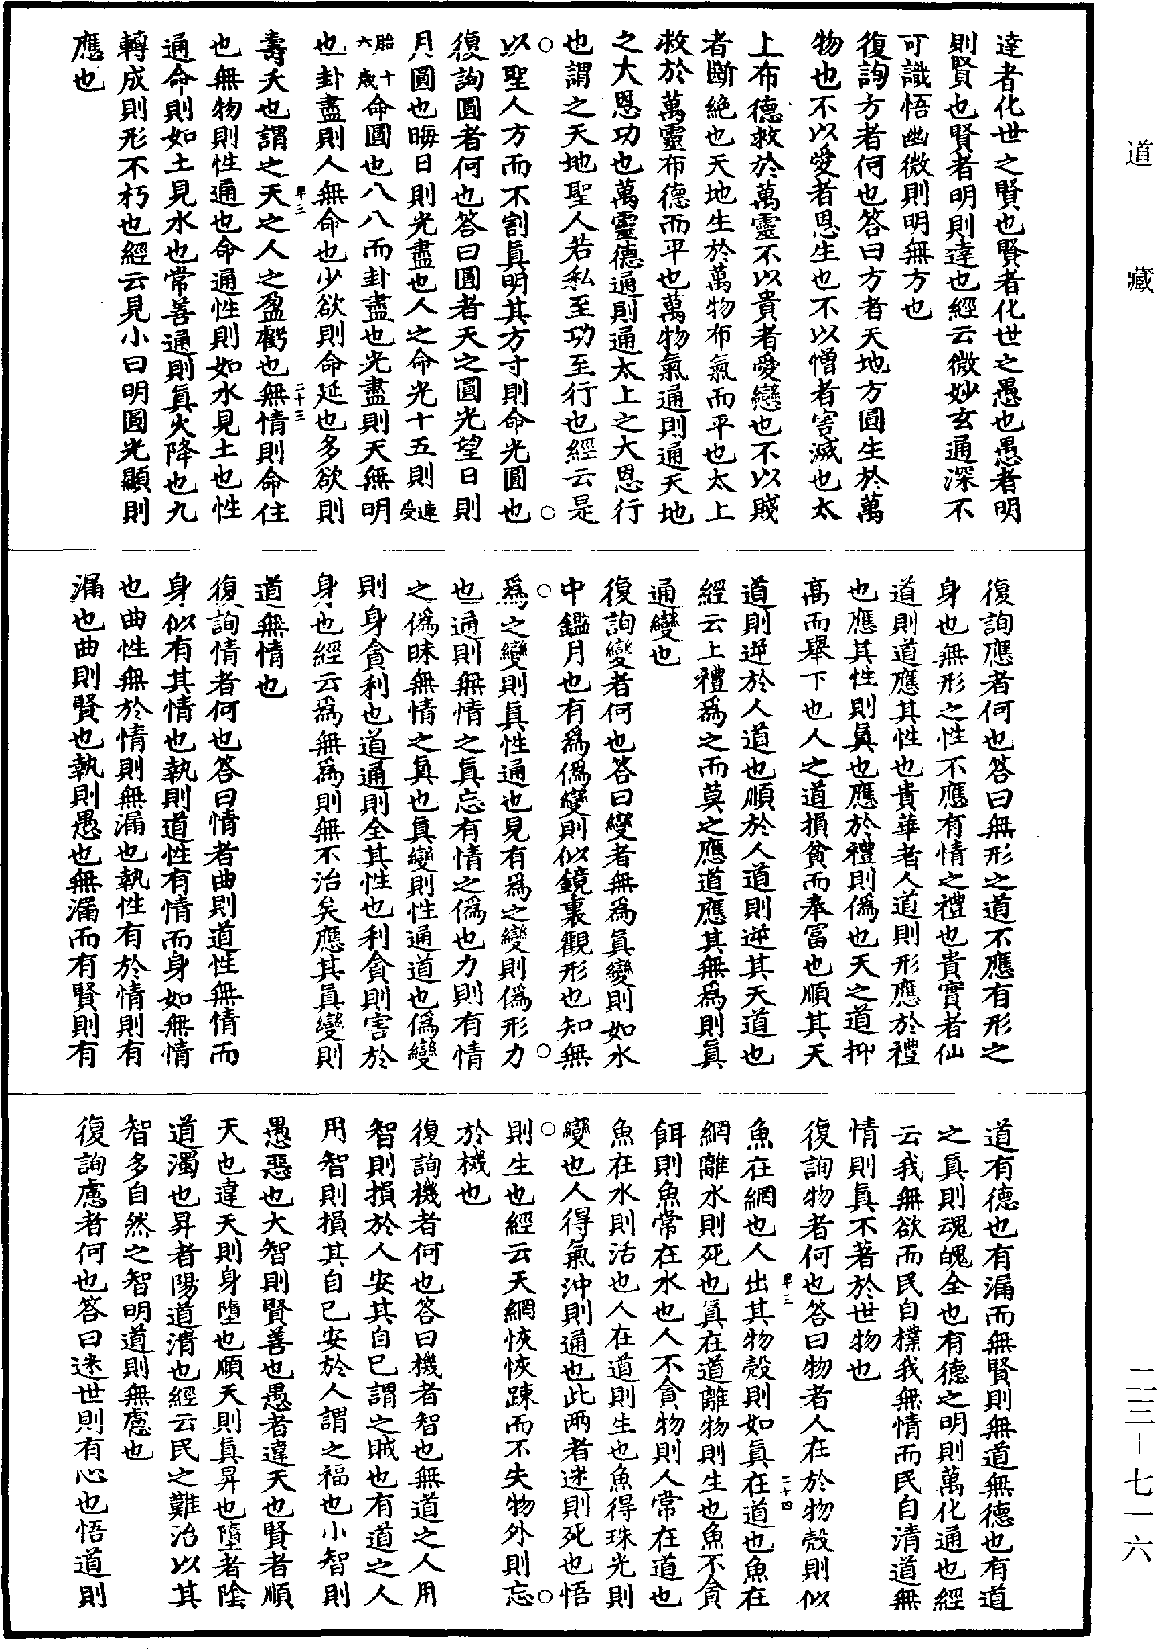 道藏
達者化世之賢也賢者化世之愚也愚者明
則賢也賢者明則達也經云微妙玄通深不
可識悟幽微則明無方也
復詢方者何也答曰方者天地方圓生於萬
物也不以愛者恩生也不以憎者害滅也太
上布德救於萬靈不以貴者愛戀也不以賤
者斷絶也天地生於萬物布氣而平也太上
救於萬靈布德而平也萬物氣通則通天地
之大恩功也萬靈德通則通太上之大恩行
也謂之天地聖人若私至功至行也經云是
以聖人方而不割眞明其方寸則命光圓也
復詢圓者何也答曰圓者天之圓光望日則
月圓也晦日則光盡也人之命光十五則連受
胎十六歲命圓也八八而卦盡也光盡則天無明
也卦盡則人無命也少欲則命延也多欲則
壽夭也謂之天之人之盈虧也無情則命住
也無物則性通也命通性則如水見土也性
通命則如土見水也常善通則眞火降也九
轉成則形不朽也經云見小曰明圓光顯則
應也
復詢應者何也答曰無形之道不應有形之
身也無形之性不應有情之禮也貴實者仙
道則道應其性也貴華者人道則形應於禮
也應其性則眞也應於禮則僞也天之道抑
高而舉下也人之道損貧而奉富也順其天
道則逆於人道也順於人道則逆其天道也
經云上禮爲之而莫之應道應其無爲則眞
通變也
復詢變者何也答曰變者無爲眞變則如水
中鑑月也有爲僞變則似鏡裏觀形也知無
爲之變則眞性通也見有爲之變則僞形力
也通則無情之眞忘有情之僞也力則有情
之僞昧無情之眞也眞變則性通道也僞變
則身貪利也道通則全其性也利貪則害於
身也經云爲無爲則無不治矣應其眞變則
道無情也
復詢情者何也答曰情者曲則道性無情而
身似有其情也執則道性有情而身如無情
也曲性無於情則無漏也執性有於情則有
漏也曲則賢也執則愚也無漏而有賢則有
道有德也有漏而無賢則無道無德也有道
之眞則魂魄全也有德之明則萬化通也經
云我無欲而民自樸我無情而民自清道無
情則眞不著於世物也
復詢物者何也答曰物者人在於物殼則似
魚在網也人出其物殼則如眞在道也魚在
網離水則死也眞在道離物則生也魚不貪
餌則魚常在水也人不貪物則人常在道也
魚在水則活也人在道則生也魚得珠光則
變也人得氣沖則通也此兩者迷則死也悟
則生也經云天網恢恢踈而不失物外則忘
於機也
復詢機者何也答曰機者智也無道之人用
智則損於人安其自己謂之賊也有道之人
用智則損其自己安於人謂之福也小智則
愚惡也大智則賢善也愚者違天也賢者順
天也違天則身墮也順天則眞昇也墮者陰
道濁也昇者陽道清也經云民之難治以其
智多自然之智明道則無慮也
復詢慮者何也答曰迷世則有心也悟道則
卑三
二十三
卑三
二十四
二三－七一六